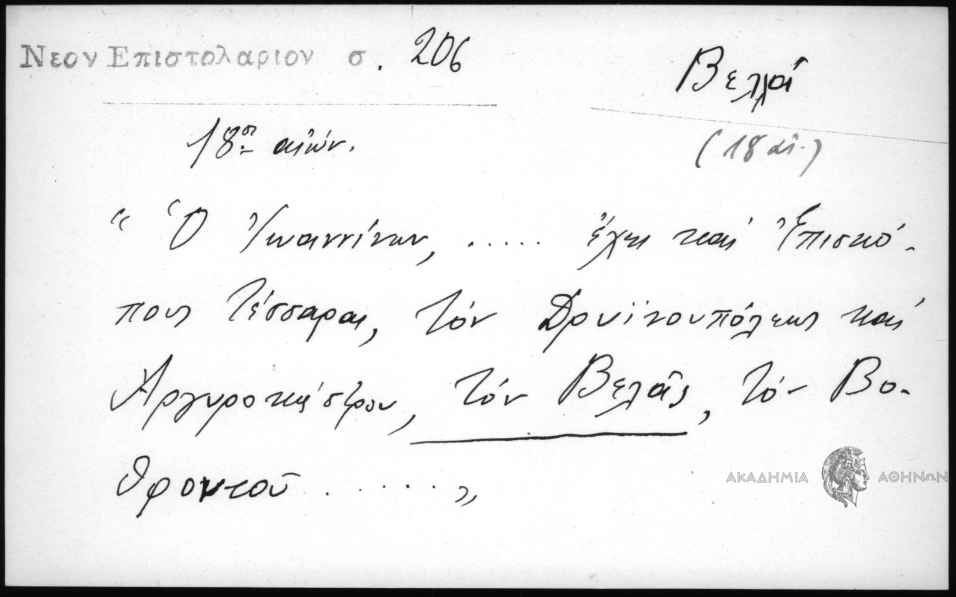 Νεον Επιστολαριον σ. 206
Βελλᾶ
18ος αἰών.
(18 αἰ.)
“ Ὁ Ἰωαννίνων, ..... ἔχει καὶ Ἐπισκό-
πους τέσσαρας, τὸν Δρυϊνουπόλεως καὶ
Ἀργυροκάστρου, τὸν Βελᾶς, τὸν Βο-
θροντοῦ ...... „
ΑΚΑΔΗΜΙΑ ΑΘΗΝΩΝ